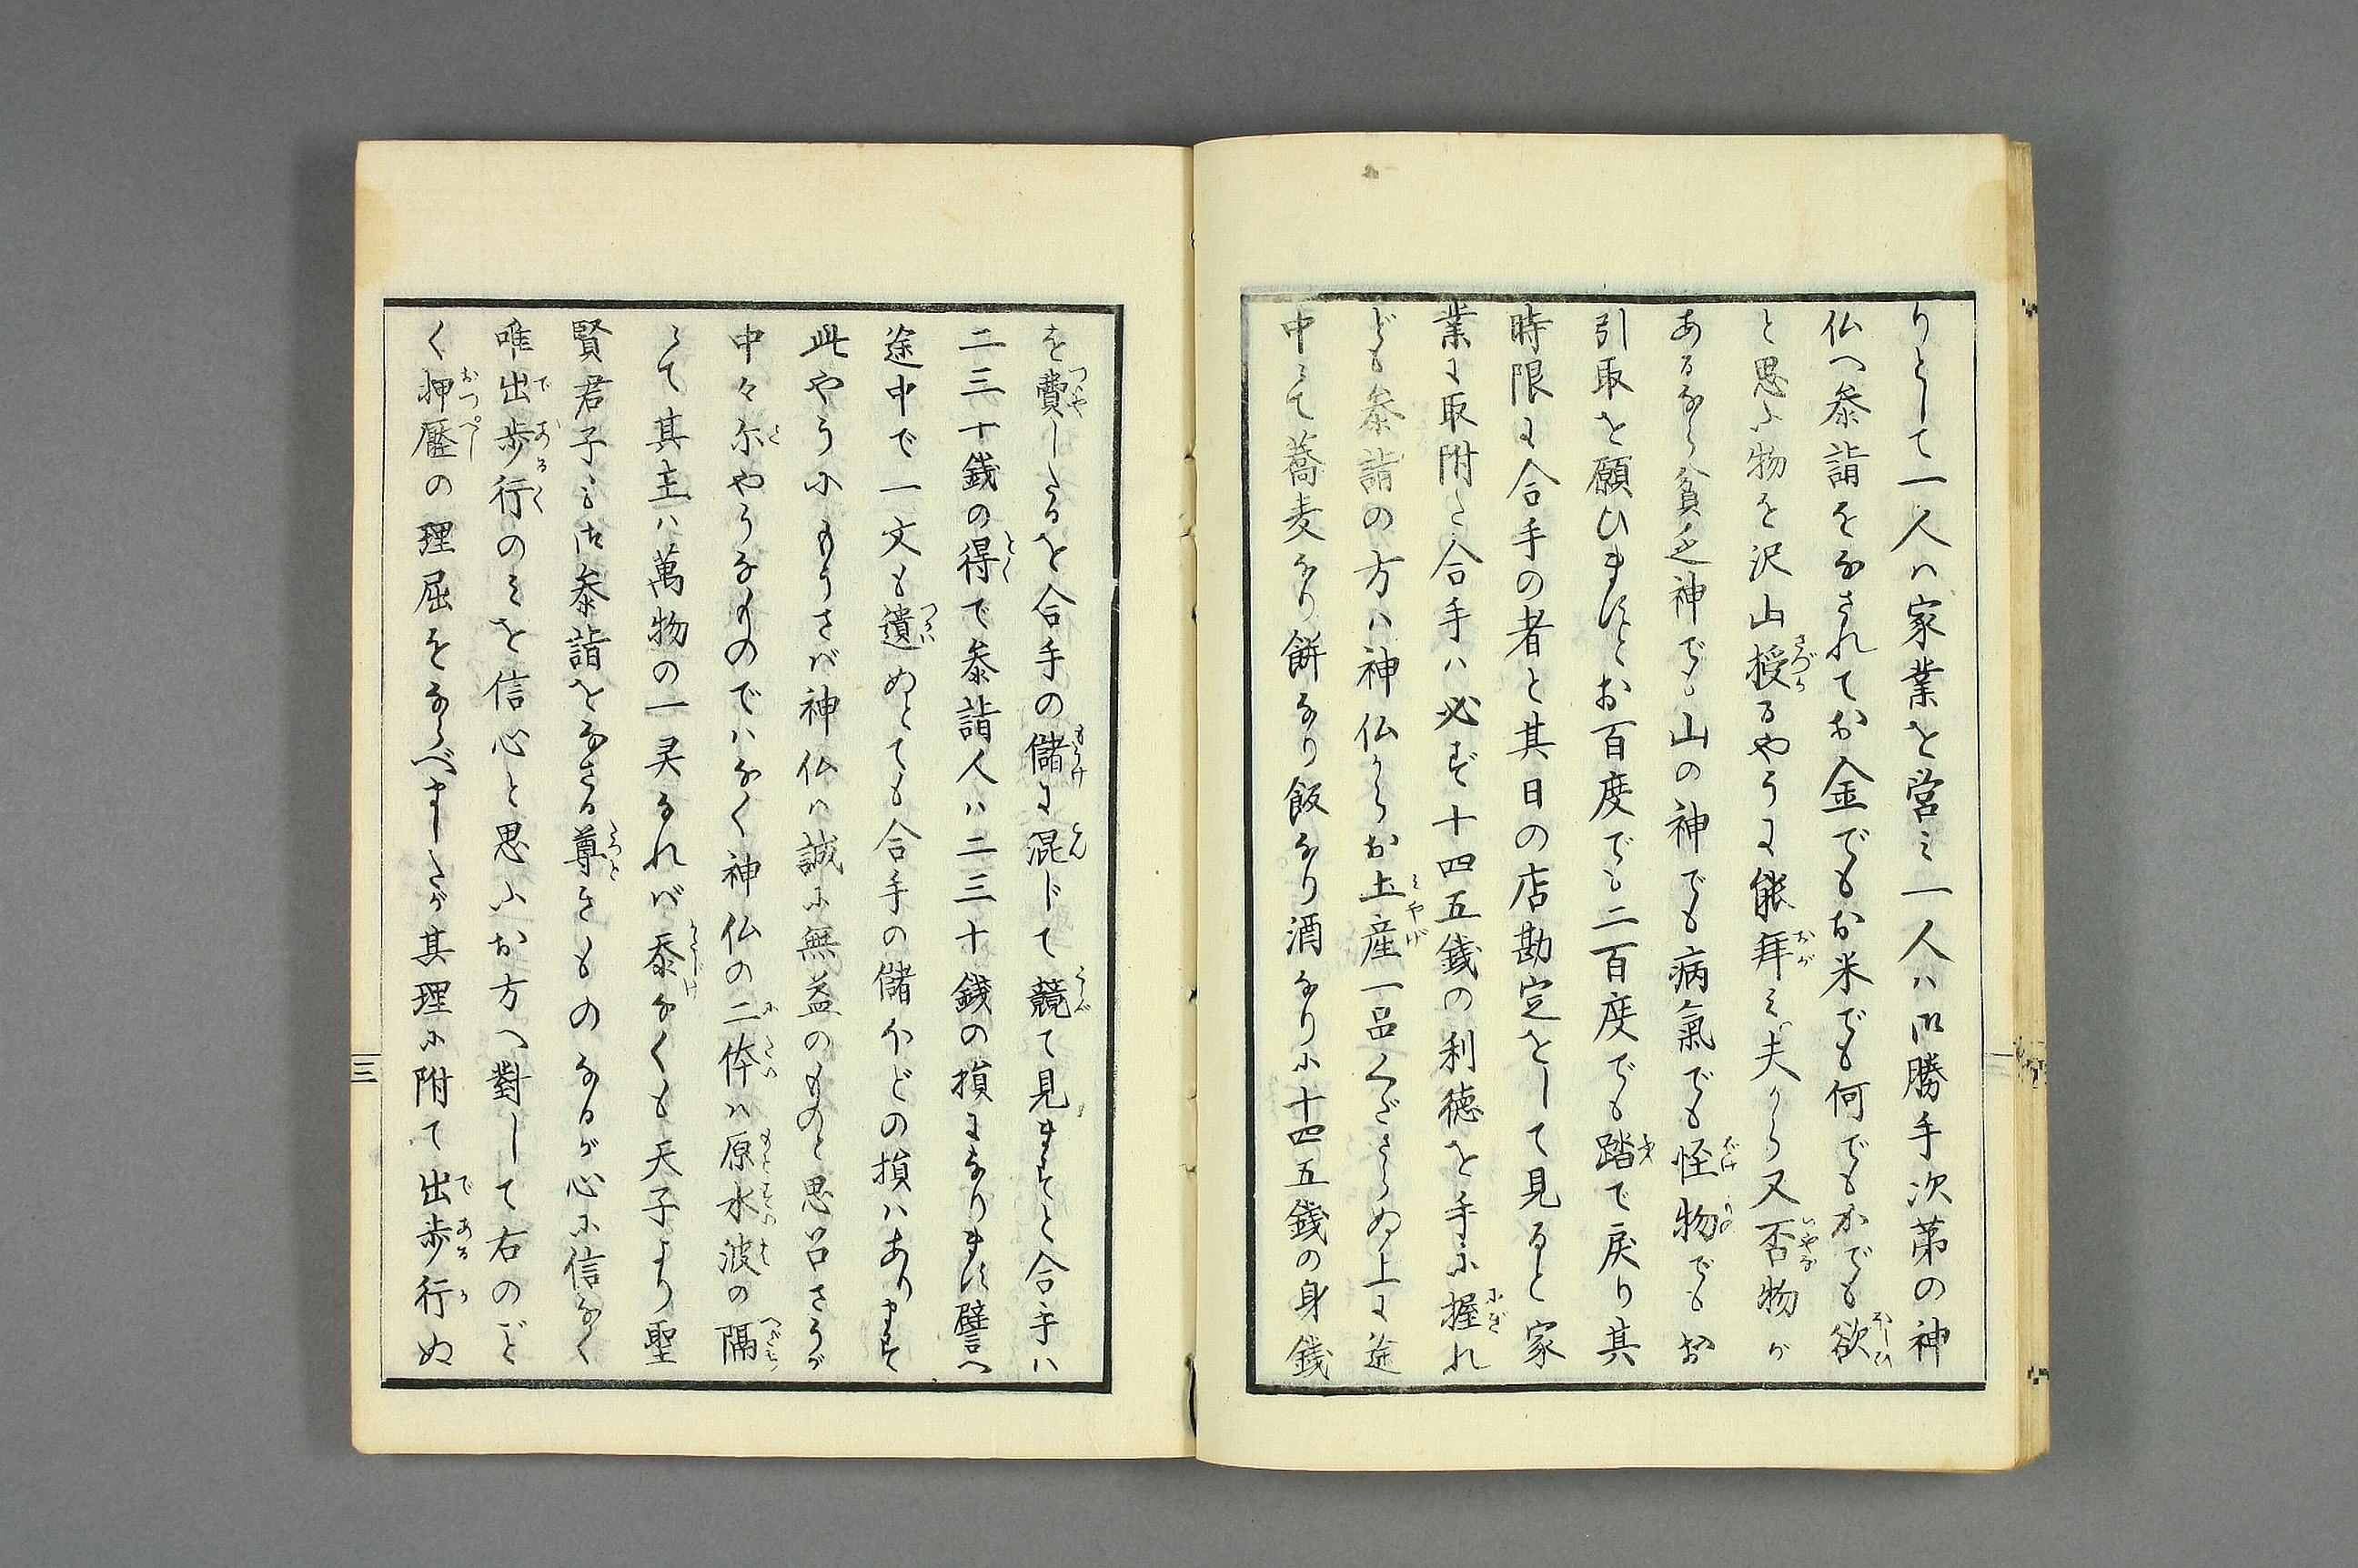 りとして一人ハ家業を営ミ一人ハ御勝手次第の神
仏へ参詣をなされてお金でもお米でも何でもかでも欲
と思ふ物を沢山授るやうに能拜ミ夫から又否物が
あるなら貧乏神でも山の神でも病氣でも怪物でもお
引取を願ひますとお百度でも二百度でも踏で戻り其
時限に合手の者と其日の店勘定をして見ると家
業に取附た合手ハ必ず十四五銭の利徳を手に握れ
ども参詣の方ハ神仏からお土産一品くださらぬ上に途
中にて蕎麦なり餅なり飯なり酒なりに十四五銭の身銭
を費したるを合手の儲に混じて競て見ますと合手ハ
二三十銭の得で参詣人ハ二三十銭の損になります譬へ
途中で一文も遺ぬとても合手の儲ほどの損ハあります
此やうにもうさバ神仏ハ誠に無益のものと思召さうが
中々尓やうなものでハなく神仏の二体ハ原水波の隔
にて其主ハ萬物の一灵なれバ忝なくも天子より聖
賢君子ミ御参詣をなさる尊きものなるが心に信なく
唯出歩行のミを信心と思ふお方へ對して右のど
く押壓の理屈をならべましたが其理に附て出歩行ぬ
三